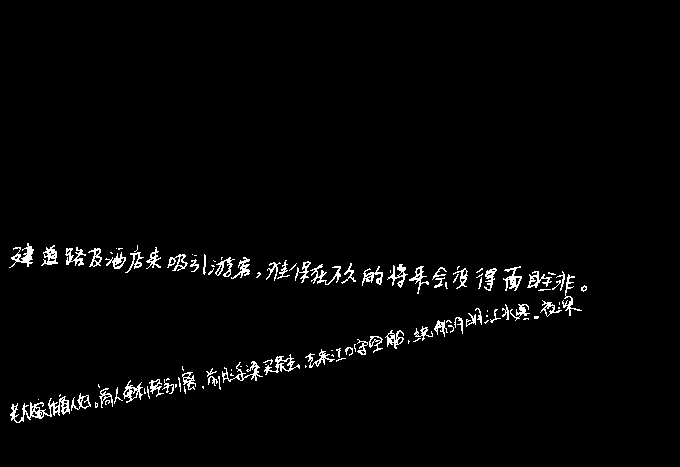 建道路及酒店来吸引游客,难保在不久的将来会变得面目全非。
老大嫁作商人妇。商人重利轻别离,前月浮梁买茶去,去来江口守空船,绕船明月江水寒。夜深